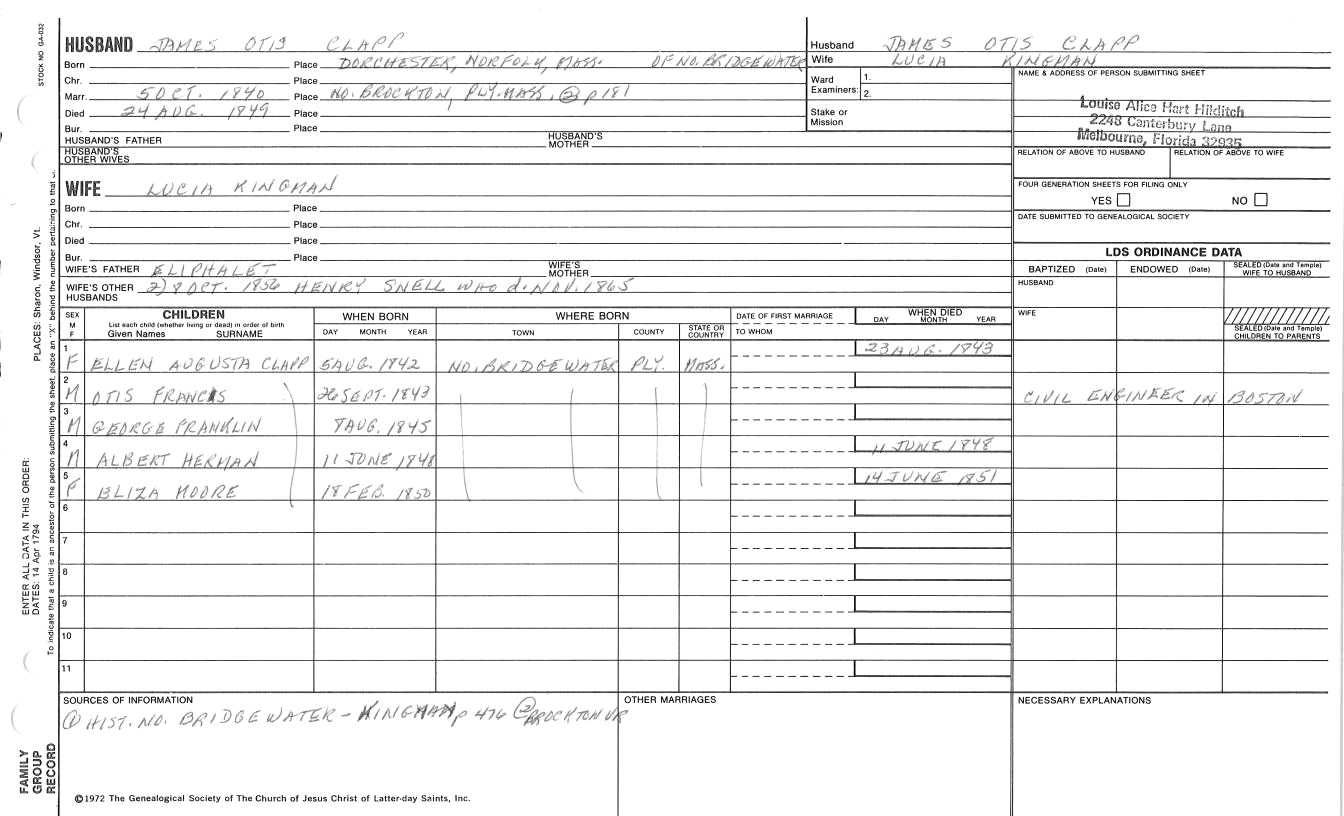 STOCK NO GA-032
HUSBAND JAMES OTIS CLAPP
Born Place DORCHESTER, NORFOLK, MASS. OF NO. BRIDGEWATER
Chr. Place
Marr. 5 OCT. 1840 Place NO. BROCKTON, PLY. MASS. ② p 181
Died 24 AUG. 1849 Place
Bur. Place
HUSBAND'S FATHER HUSBAND'S MOTHER
HUSBAND'S OTHER WIVES
Husband JAMES OTIS CLAPP
Wife LUCIA KINGMAN
Ward Examiners: 1.
2.
Stake or Mission
NAME & ADDRESS OF PERSON SUBMITTING SHEET
Louise Alice Hart Hilditch
2248 Canterbury Lane
Melbourne, Florida 32935
RELATION OF ABOVE TO HUSBAND RELATION OF ABOVE TO WIFE
FOUR GENERATION SHEETS FOR FILING ONLY
YES NO
DATE SUBMITTED TO GENEALOGICAL SOCIETY
WIFE LUCIA KINGMAN
Born Place
Chr. Place
Died Place
Bur. Place
WIFE'S FATHER ELIPHALET WIFE'S MOTHER
WIFE'S OTHER HUSBANDS 2) 8 OCT. 1856 HENRY SNELL WHO d. NOV. 1865
LDS ORDINANCE DATA
BAPTIZED (Date) ENDOWED (Date) SEALED (Date and Temple) WIFE TO HUSBAND
HUSBAND
WIFE
SEALED (Date and Temple) CHILDREN TO PARENTS
SEX M F
CHILDREN
List each child (whether living or dead) in order of birth
Given Names SURNAME
WHEN BORN
DAY MONTH YEAR
WHERE BORN
TOWN COUNTY STATE OR COUNTRY
DATE OF FIRST MARRIAGE
TO WHOM
WHEN DIED
DAY MONTH YEAR
1 F ELLEN AUGUSTA CLAPP 5 AUG. 1842 NO. BRIDGEWATER PLY. MASS. 23 AUG. 1843
2 M OTIS FRANCIS 26 SEPT. 1843 CIVIL ENGINEER IN BOSTON
3 M GEORGE FRANKLIN 8 AUG. 1845
4 M ALBERT HERMAN 11 JUNE 1848 11 JUNE 1848
5 F ELIZA MOORE 18 FEB. 1850 14 JUNE 1851
6
7
8
9
10
11
SOURCES OF INFORMATION
① HIST. NO. BRIDGEWATER - KINGMAN p 476 ② BROCKTON VR
OTHER MARRIAGES
NECESSARY EXPLANATIONS
©1972 The Genealogical Society of The Church of Jesus Christ of Latter-day Saints, Inc.
FAMILY GROUP RECORD
ENTER ALL DATA IN THIS ORDER:
DATES: 14 Apr 1794
PLACES: Sharon, Windsor, Vt.
To indicate that a child is an ancestor of the person submitting the sheet, place an "X" behind the number pertaining to that